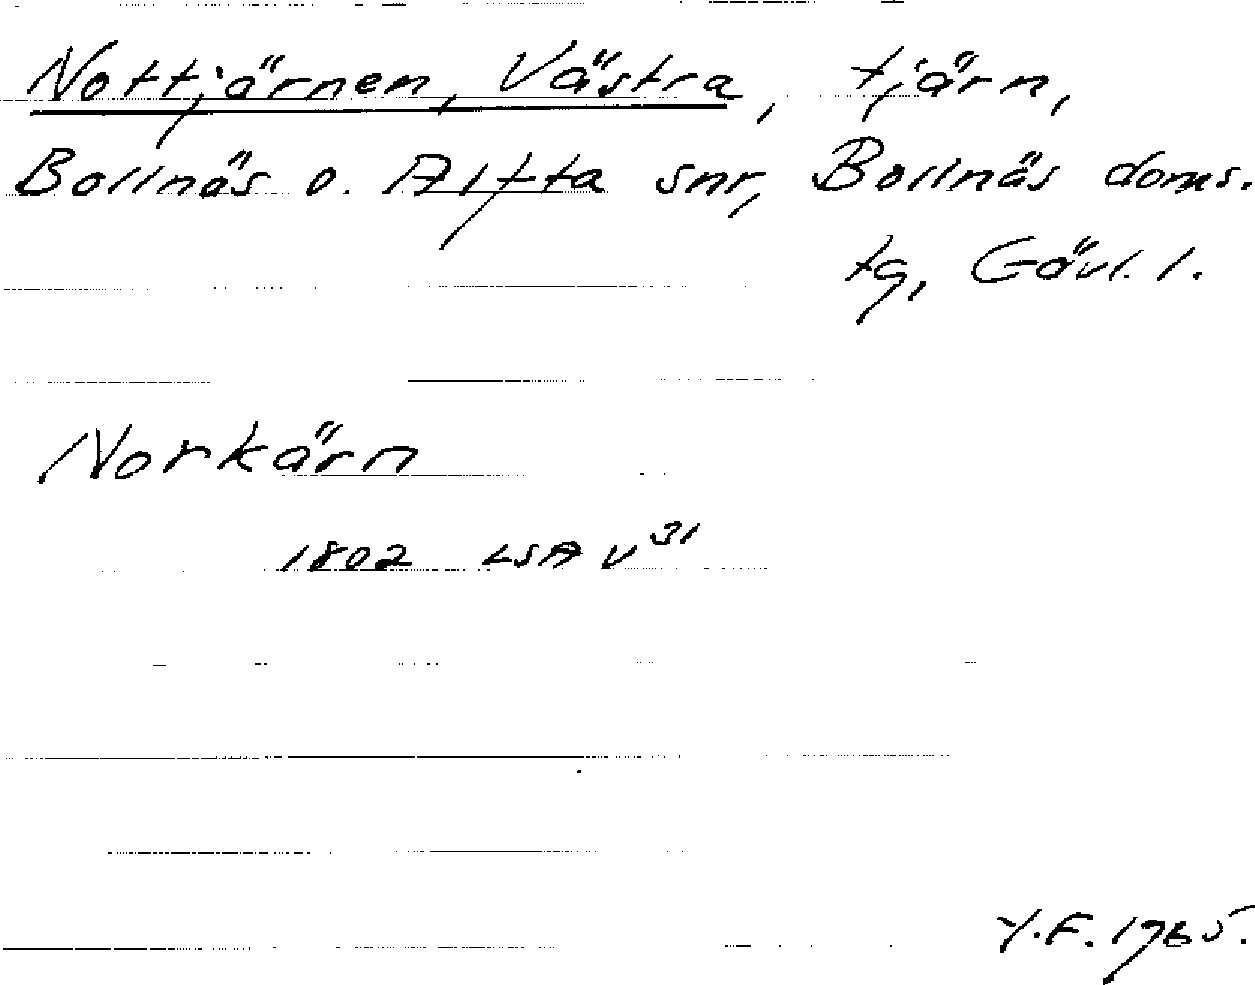 Nottjärnen, Västra, tjärn,
Bollnäs o. Alfta snr, Bollnäs doms.
tg, Gävl. l.
Norkärn
1802 LSA V³¹
Y.F. 1965.